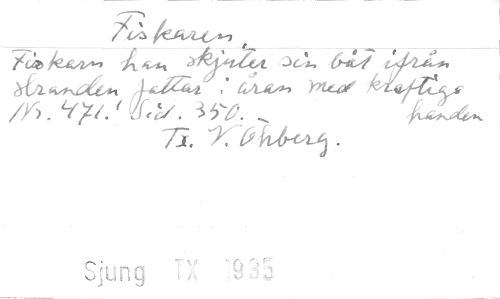 Fiskaren
Fiskarn han skjuter sin båt ifrån
stranden fattar i åran med kraftiga
handen
Nr. 471. Sid. 350.
Tx. V. Öhberg.
Sjung TX 1935